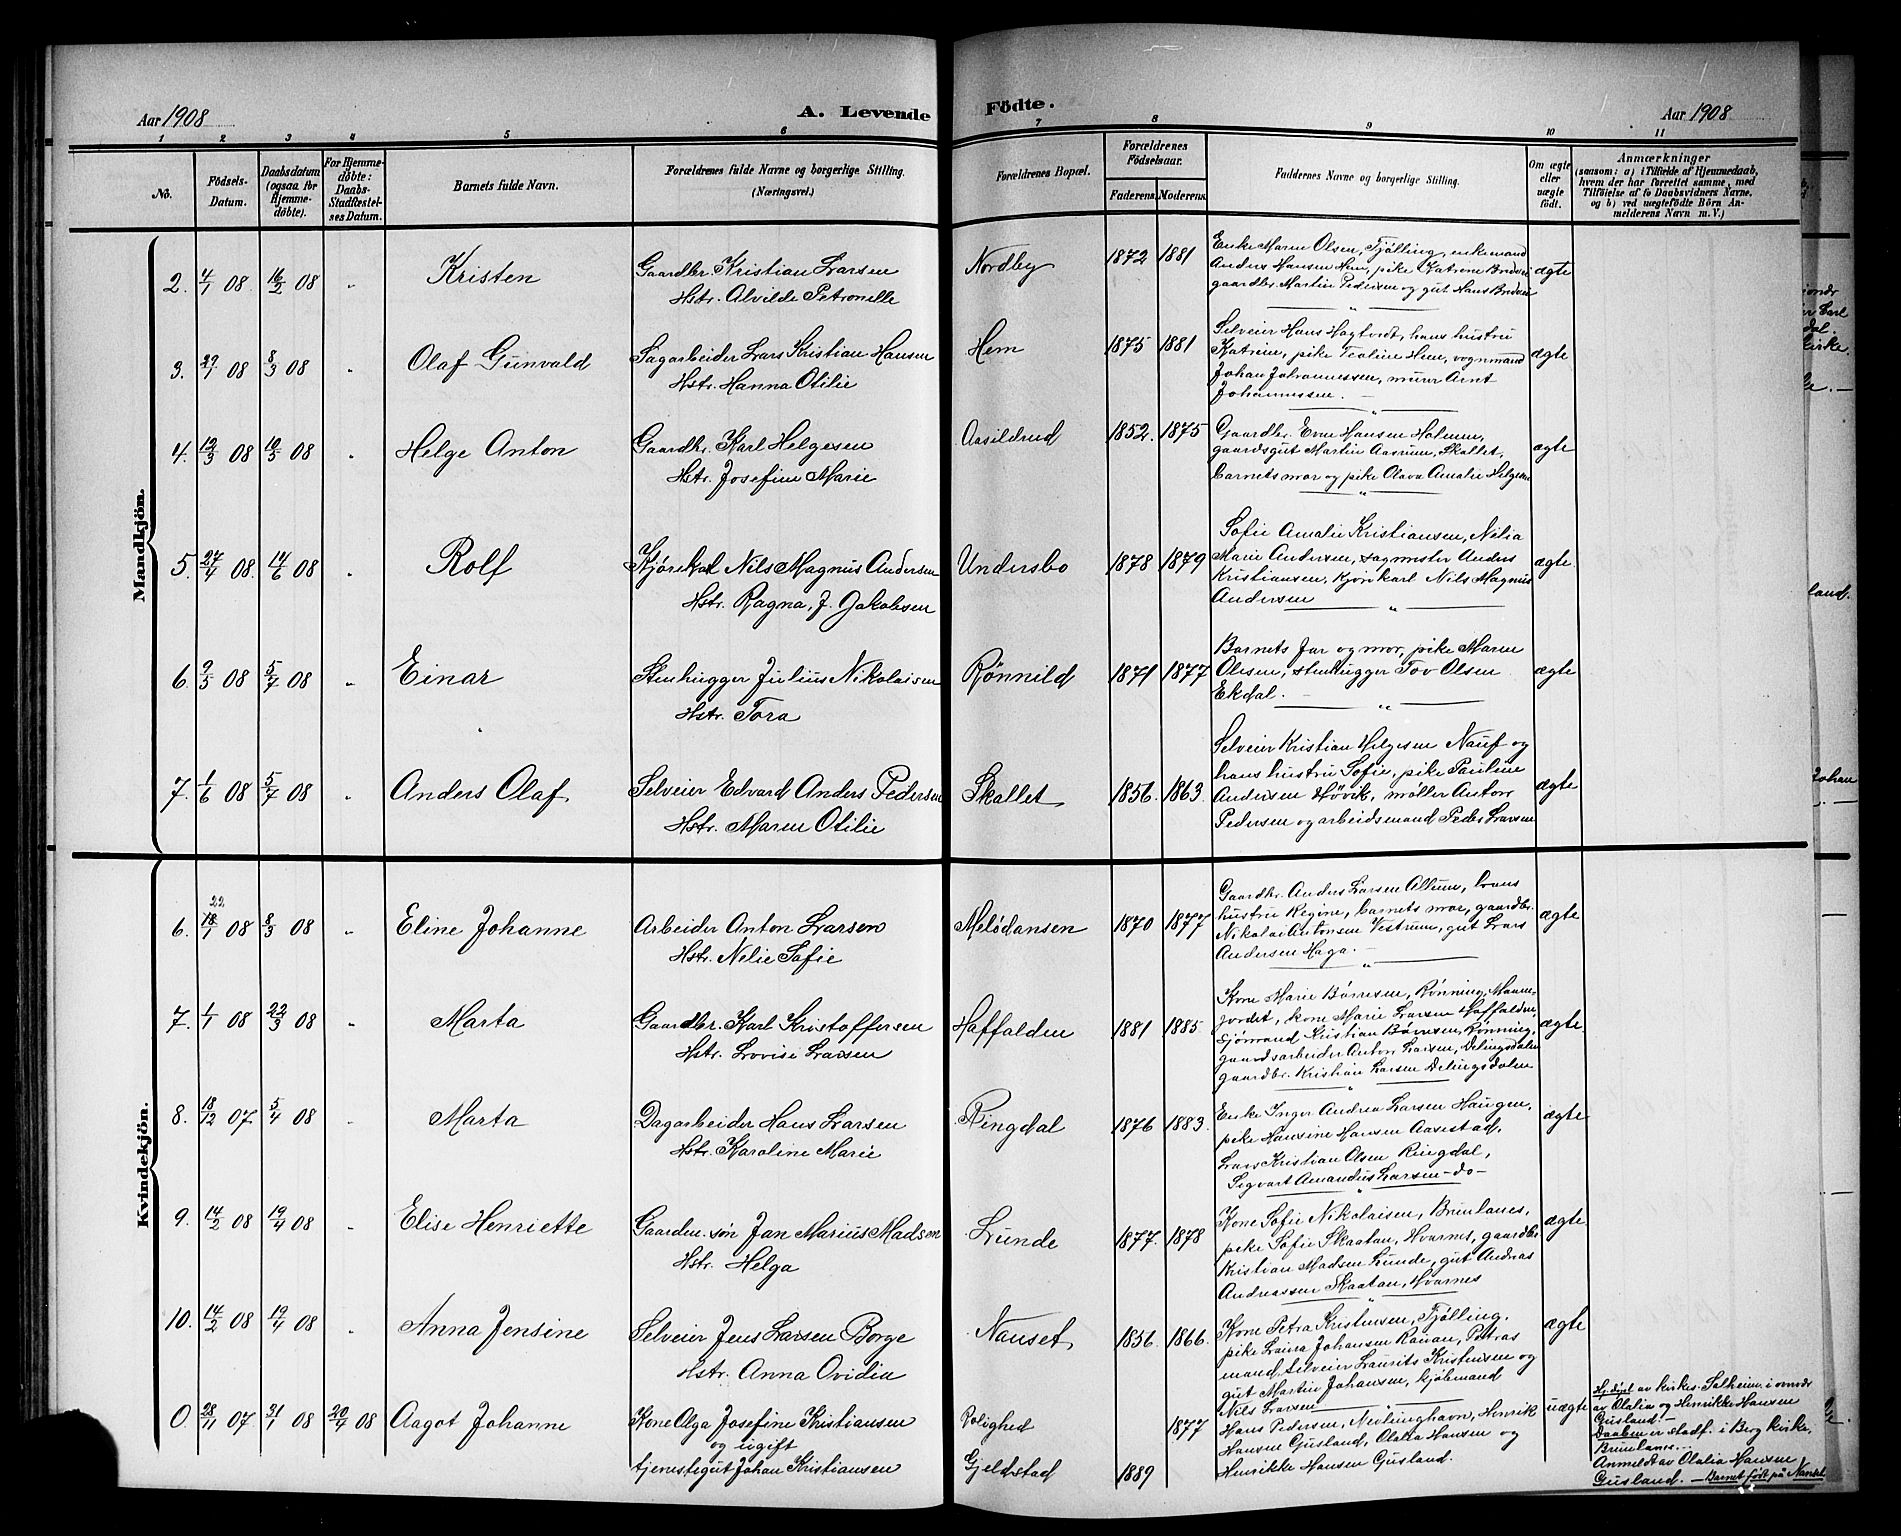 Aar 1908
A. Levende
Födte.
Aar 1908
1 2 3 4 5 6 7 8 9 10 11
No.
Födsels-
Datum.
Daabsdatum
(ogsaa for
Hjemme-
döbte).
For Hjemme-
döbte:
Daabs-
Stadfæstel-
ses Datum.
Barnets fulde Navn.
Forældrenes fulde Navne og borgerlige Stilling.
(Næringsvei.)
Forældrenes Bopæl.
Forældrenes
Födselsaar.
Faderens. Moderens.
Faddernes Navne og borgerlige Stilling.
Om ægte
eller
uægte
födt.
Anmærkninger
(saasom: a) i Tilfælde af Hjemmedaab,
hvem der har forrettet samme, med
Tilföielse af to Daabsvidners Navne,
og b) ved uægtefödte Börn An-
melderens Navn m. V.)
Mandkjön.
2. 4/1 08 16/2 08 " Kristen
Gaardbr. Kristian Larsen
Hstr. Alvilde Petronelle
Nordby 1872 1881
Enke Maren Olsen, Tjølling, enkemand
Anders Hansen Hem, pike Katrine
gaardbr. Martin Pedersen og gut Hans
ægte
3. 27/1 08 8/3 08 " Olaf Gunvald
Sagarbeider Lars Kristian Hansen
Hstr. Hanna Otilie
Hem 1875 1881
Selveier Hans Hagtvedt, hans hustru
Katrine, pike Teoline Hem, vognmand
Johan Johannessen, murer Arnt
Johannessen. —
ægte
4. 12/3 08 10/5 08 " Helge Anton
Gaardbr. Karl Helgesen
Hstr. Josefine Marie
Aasildrud 1852. 1875
Gaardbr. Erne Hansen Holmen,
gaardsgut Martin Aasrum, Skallet,
barnets mor og pike Olava Amalie Helgesen
ægte
5. 24/4 08. 14/6 08 " Rolf
Kjørekarl Nils Magnus Andersen
Hstr. Ragna, J. Jakobsen
Undersbo 1878 1879
Sofie Amalie Kristiansen, Nilia
Marie Andersen, sagmester Anders
Kristiansen, kjørekarl Nils Magnus
Andersen
ægte
6. 9/5 08 5/7 08 " Einar
Stenhugger Julius Nikolaisen
Hstr. Tora
Rønnild 1871 1877
Barnets far og mor, pike Maren
Olesen, stenhugger Tov Olsen
Ekdal. —
ægte
7. 1/6 08 5/7 08 " Anders Olaf
Selveier Edvard Anders Pedersen
Hstr. Maren Otilie
Skallet 1856. 1863.
Selveier Kristian Helgesen Nauf og
hans hustru Sofie, pike Pauline
Andersen Høvik, møller Anton
Pedersen og arbeidsmand Peder Larsen
ægte
Kvindekjön.
22
6. 18/1 08 8/3 08 " Eline Johanne
Arbeider Anton Larsen
Hstr. Nelie Sofie
Melødansen 1870 1877
Gaardbr. Anders Larsen Allum, hans
hustru Regine, barnets mor, gaardbr.
Nikolai Antonsen Vestrum, gut Lars
Andersen Haga. —
ægte
7. 1/1 08 22/3 08 " Marta
Gaardbr. Karl Kristoffersen
Hstr. Lovise Larsen
Haffalden 1881 1885.
Kone Marie Børresen, Rønning,
jordet, kone Marie Larsen Haffalden,
sjømand Kristian Børresen, Rønning,
gaardsarbeider Anton Larsen, Delingsdalen
gaardbr. Kristian Larsen Delingsdalen
ægte
8. 18/12 07 5/4 08 " Marta
Dagarbeider Hans Larsen
Hstr. Karoline Marie
Ringdal 1876 1883.
Enke Inger Andrea Larsen Haugen,
pike Hansine Hansen Aarestad,
Lars Kristian Olsen Ringdal,
Sigvart Amandus Larsen -do-
ægte
9. 14/2 08 19/4 08 " Elise Henriette
Gaardm.søn Jan Marius Madsen
Hstr. Helga
Lunde 1877. 1878
Kone Sofie Nikolaisen, Brunlanes,
pike Sofie Skaatan, Hvarnes, gaardbr.
Kristian Madsen Lunde, gut Andreas
Andreassen Skaatan, Hvarnes
ægte
10. 14/2 08 19/4 08 " Anna Jensine
Selveier Jens Larsen Borge
Hstr. Anna Ovidia
Nanset 1856. 1866.
Kone Petra Kristensen, Tjølling.
pike Laura Johansen Ravan, Petras
mand, selveier Laurits Kristensen og
gut Martin Johansen, kjøbmand
Nils Larsen
ægte
0. 28/11 07 21/1 08 20/4 08 Aagot Johanne
Kone Olga Josefine Kristiansen
og ugift
tjenestegut Johan Kristiansen
Rolighed 1877
Gjeldstad 1889
Hans Pedersen, Nevlunghavn, Henrik
Hansen Gusland, Olalia Hansen og
Henrikke Hansen Gusland.
uægte
Hj.døpt av kirkes. Solheim i nærvær
av Olalia og Henrikke Hansen
Gusland. —
Daaben er stadf. i Berg kirke,
Brunlanes..
Anmeldt av Olalia Hansen
Gusland. — Barnet født på Nanset